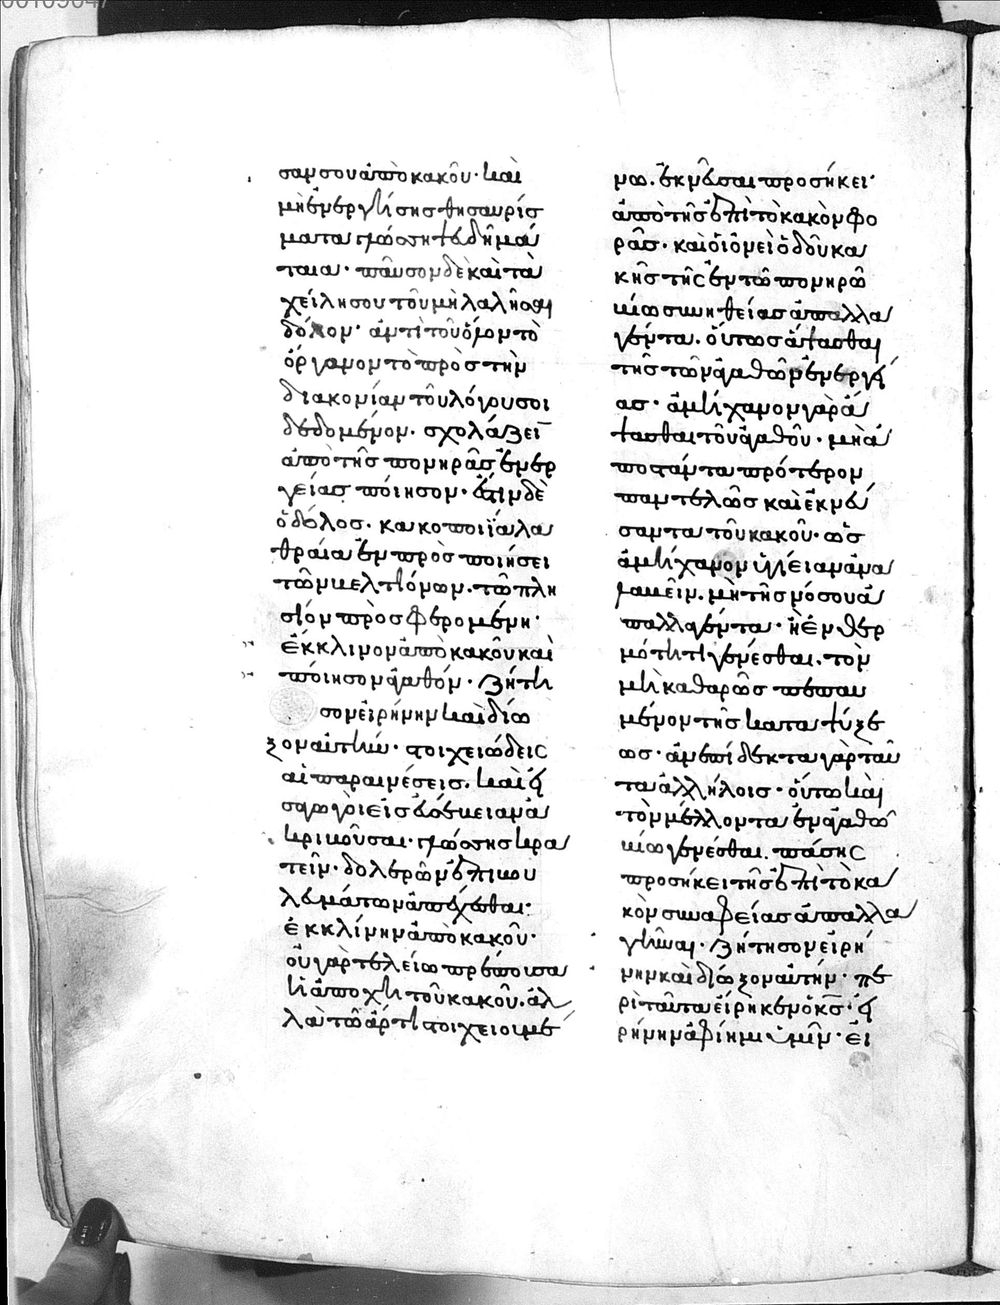 σαν σου ἀπὸ κακοῦ· καὶ
μὴ ἐνεργήσῃς θησαυρίσ
ματα γλώσσῃ ψεδῆ μά
ταια· παῦσον δὲ καὶ τὰ
χείλη σου τοῦ μὴ λαλῆσαι
δόλον· ἀντὶ τοῦ ὅλον τὸ
ὄργανον τὸ πρὸς τὴν
διακονίαν τοῦ λόγου σοι
δεδομένον· σχολάζειν
ἀπὸ τῆς πονηρᾶς ἐνερ
γείας ποίησον· ἔστιν δὲ
ὁ δόλος· κακοποιΐα λα
θραία ἐν προσποιήσει
τῶν βελτιόνων· τῶ πλη
σίον προσφερομένη·
ἔκκλινον ἀπὸ κακοῦ καὶ
ποίησον ἀγαθόν· ζήτη
σον εἰρήνην καὶ δίω
ξον αὐτήν· στοιχειώδεις
αἱ παραινέσεις· καὶ εἰ
σαγωγοὶ εἰς εὐσέβειαν ἀ
κριβοῦσαι· γλώσσης κρα
τεῖν· δολερῶν ἐπιβου
λευμάτων ἀπέχεσθαι·
ἐκκλίνην ἀπὸ κακοῦ·
οὐ γὰρ τελείω πρέπουσα
ἡ ἀποχὴ τοῦ κακοῦ· ἀλ
λὰ τῶ ἄρτι στοιχειουμέ
νω· ἐκνεῦσαι προσήκει·
ἀπὸ τῆς ἐπὶ τὸ κακὸν φο
ρᾶς· καὶ οἱονεὶ ὁδοῦ κα
κῆς τῆς ἐν τῶ πονηρῶ
βίω συνηθείας ἀπαλλα
γέντα· οὕτως ἅψασθαι
τῆς τῶν ἀγαθῶν ἐνεργεί
ας· ἀμήχανον γὰρ ἅ
ψασθαι τοῦ ἀγαθοῦ· μὴ ἀ
ποστάντα πρότερον
παντελῶς καὶ ἐκνεύ
σαντα τοῦ κακοῦ· ὡς
ἀμήχανον ὑγείαν ἀνα
λαβεῖν· μὴ τῆς νόσου ἀ
παλλαγέντα· ἢ ἐν θερ
μότητι γενέσθαι· τὸν
μὴ καθαρῶς πεπαυ
μένον τῆς καταψύξε
ως· ἀνεπίδεκτα γὰρ ταῦ
τα ἀλλήλοις· οὕτω καὶ
τὸν μέλλοντα ἐν ἀγαθῶ
βίω γενέσθαι· πάσης
προσήκει τῆς ἐπὶ τὸ κα
κὸν συναφείας ἀπαλλα
γῆναι· ζήτησον εἰρή
νην καὶ δίωξον αὐτήν· πε
ρὶ ταύτα εἴρηκεν ὁ κς· εἰ
ρήνην ἀφίημι ὑμῖν· εἰ